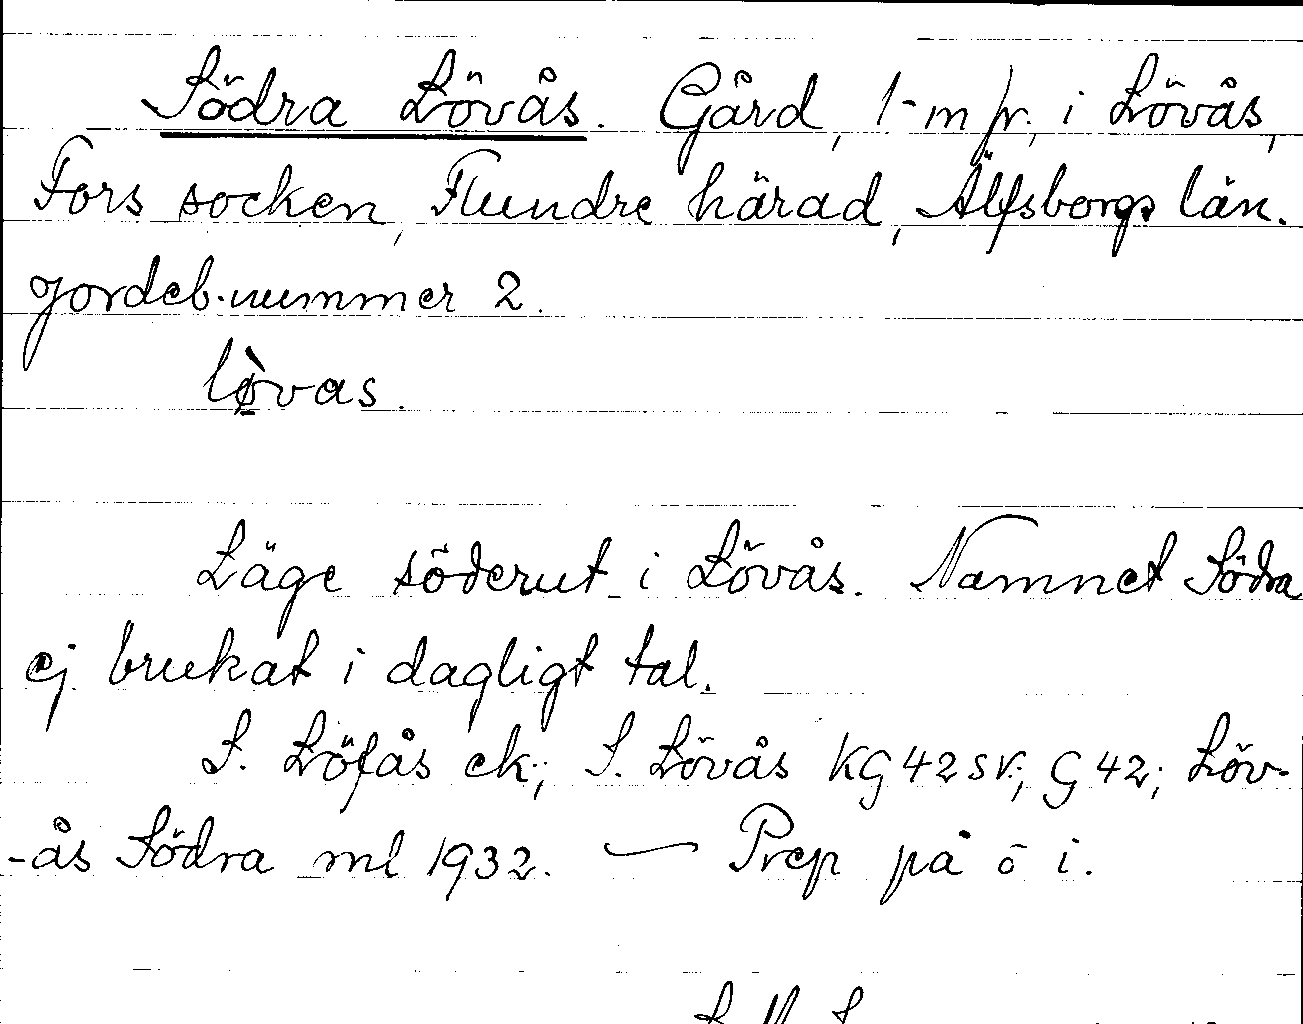 Södra Lövås. Gård, 1-m pr., i Lövås,
Fors socken, Flundre härad, Älfsborgs län.
Jordeb.nummer 2.
lø̀vas.
Läge söderut i Lövås. Namnet Södra
ej brukat i dagligt tal.
S. Löfås ek.; S. Lövås KG 42 SV.; G 42; Löv-
-ås Södra ml 1932. — Prep på o i.